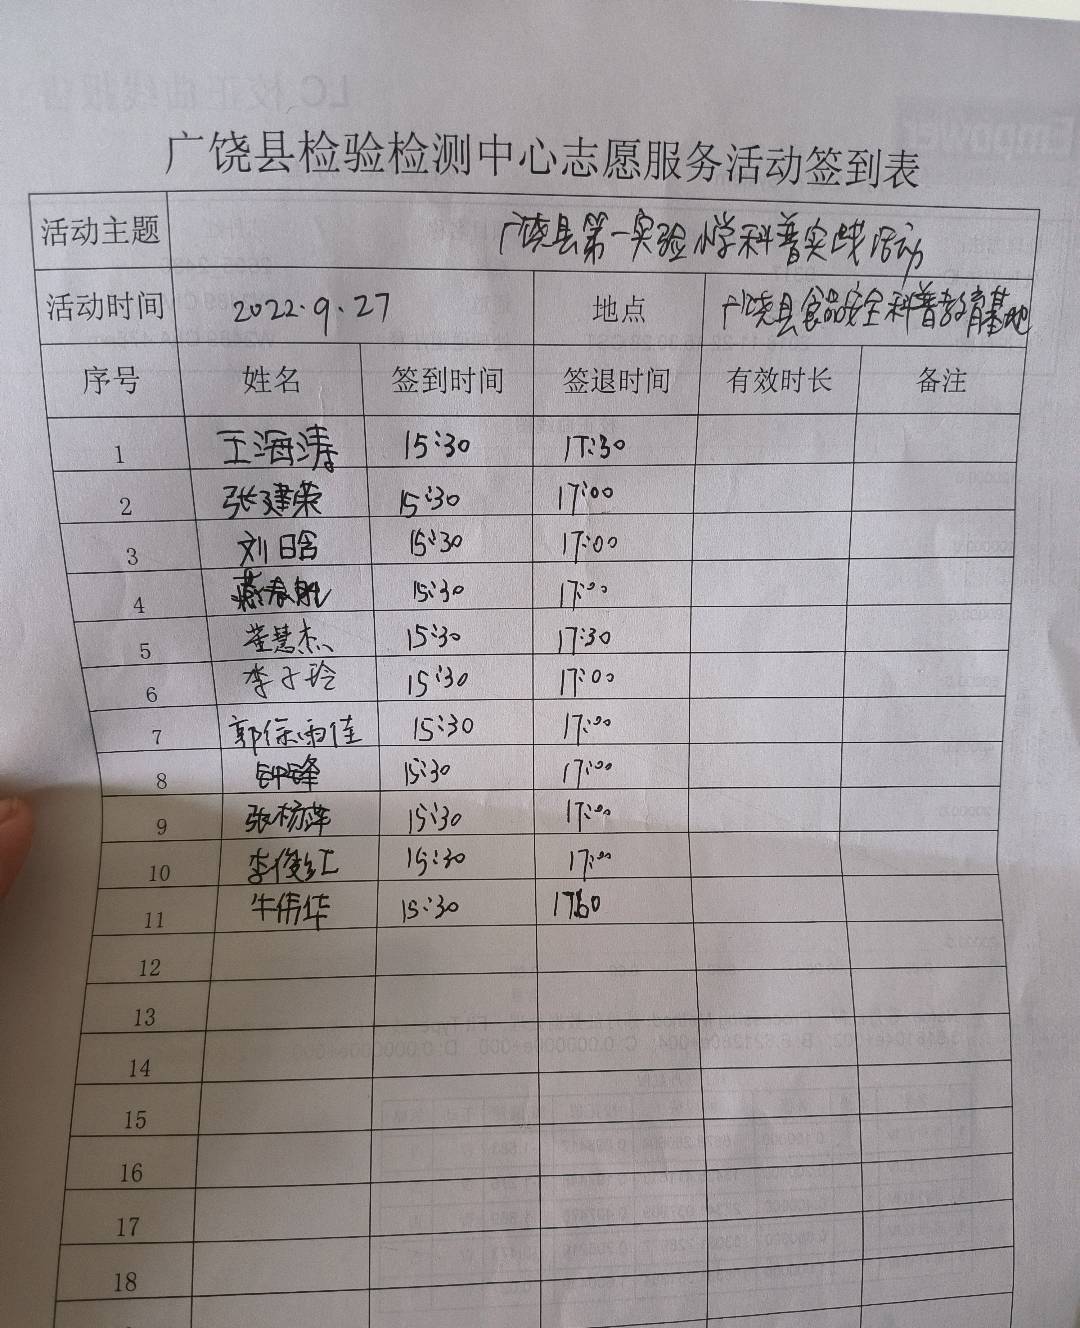 广饶县检验检测中心志愿服务活动签到表
活动主题 广饶县第一实验小学科普实践活动
活动时间 2022.9.27 地点 广饶县食品安全科普教育基地
序号 姓名 签到时间 签退时间 有效时长 备注
1 王海涛 15:30 17:30
2 张建荣 15:30 17:00
3 刘晗 15:30 17:00
4 15:30 17:00
5 董慧杰 15:30 17:30
6 李子玲 15:30 17:00
7 郭徐雨佳 15:30 17:00
8 15:30 17:00
9 张杨萍 15:30 17:00
10 李俊红 15:30 17:00
11 牛伟华 15:30
12
13
14
15
16
17
18